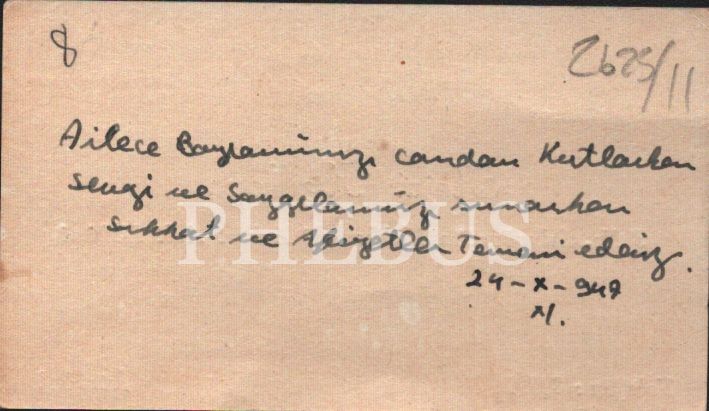 8
2625/11
Ailece Bayramınızı candan Kutlarken
sevgi ve Saygılarımızı sunarken
sıhhat ve Afiyetler Temeni ederiz.
24-X-947
PHEBUS